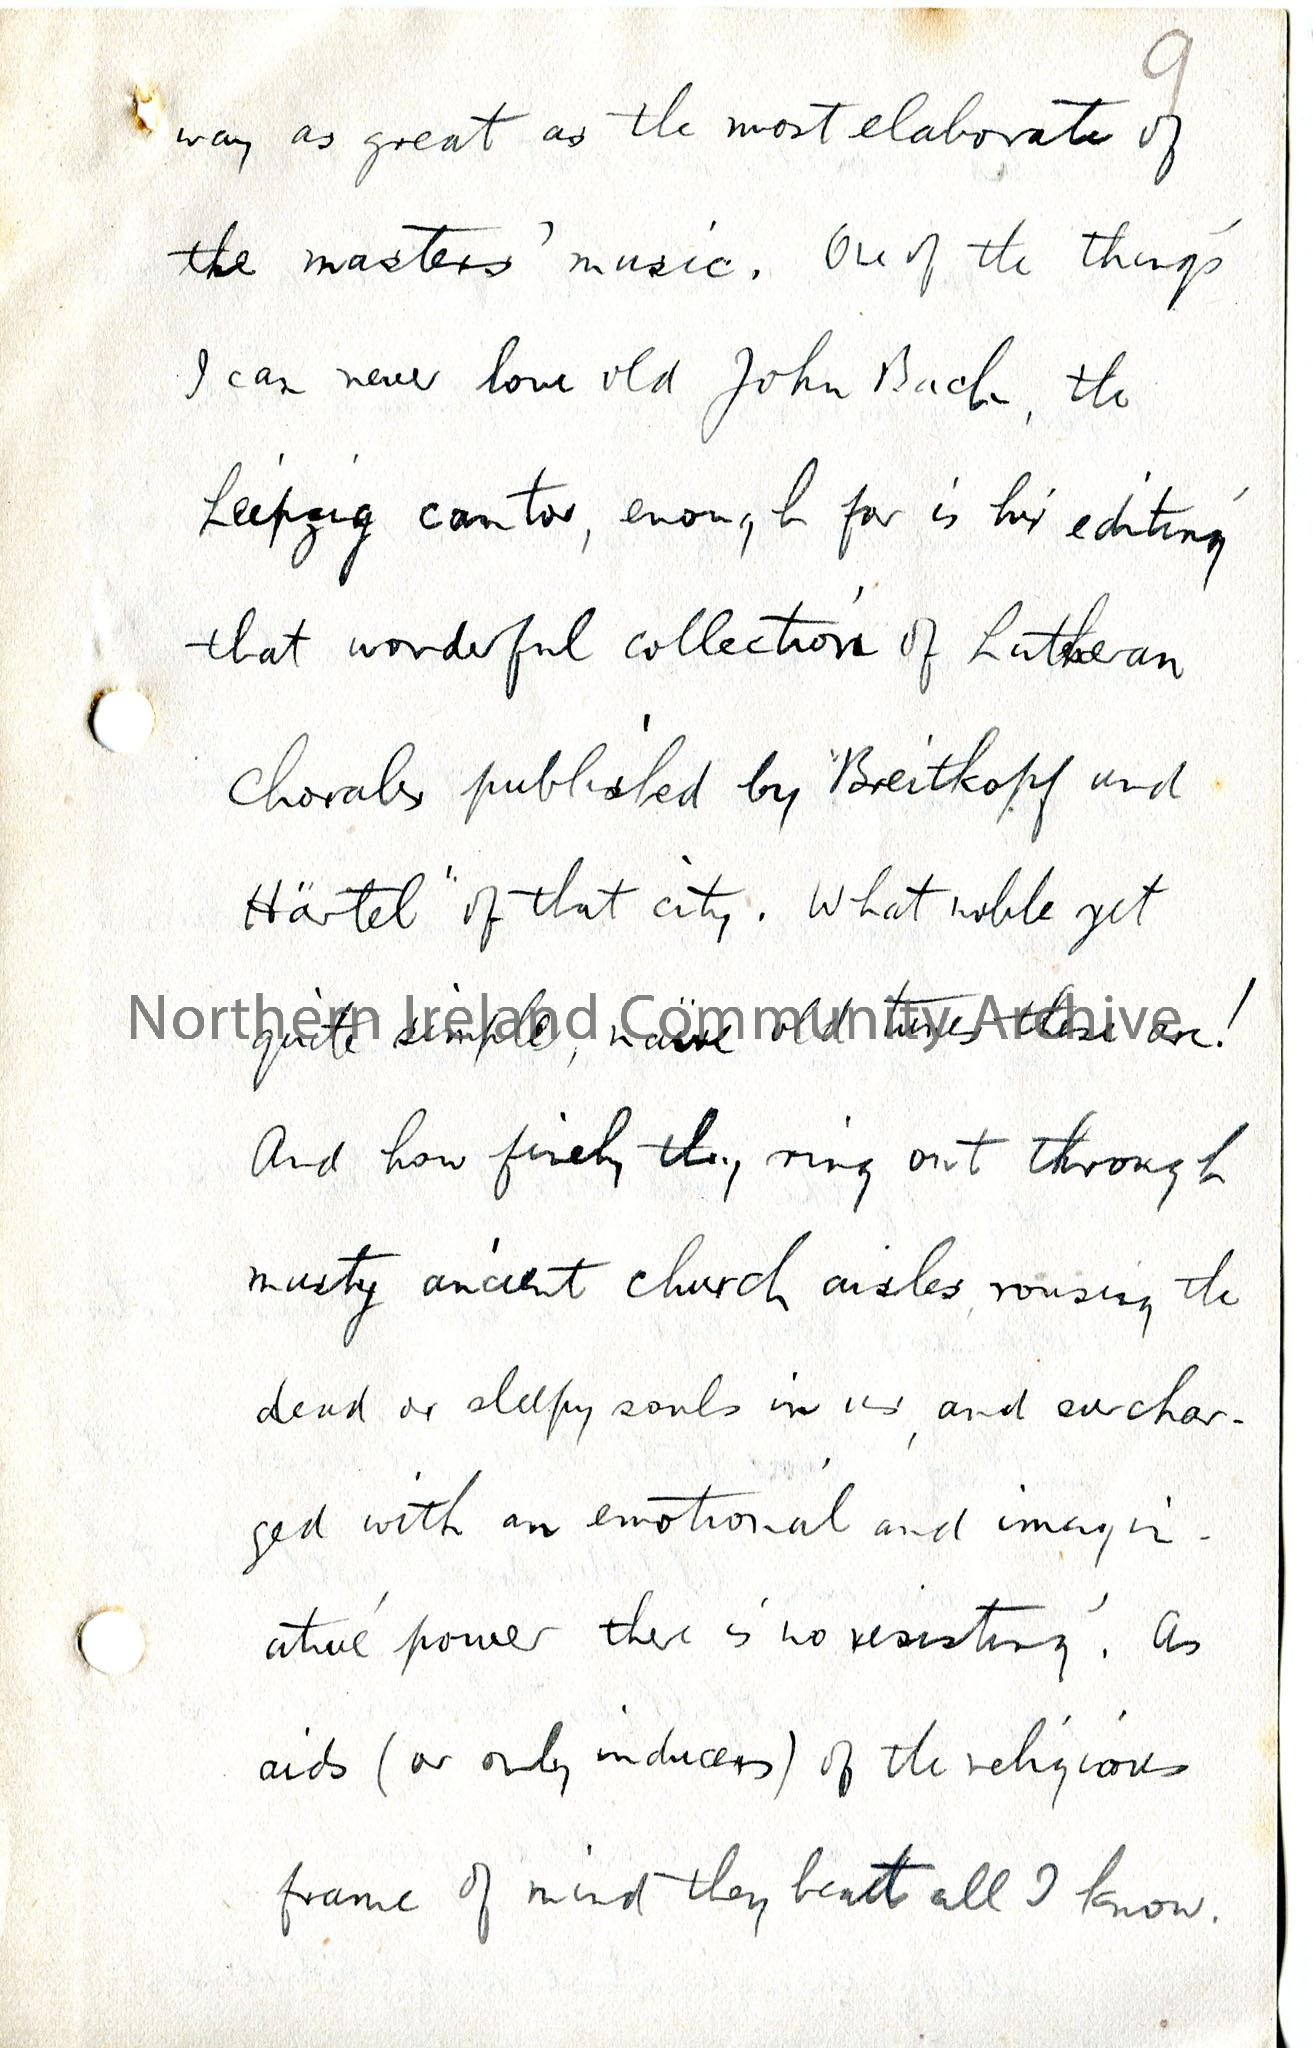 9
way as great as the most elaborate of
the masters' music. One of the things
I can never love old John Bach, the
Leipzig cantor, enough for is his editing
that wonderful collection of Lutheran
Chorales published by "Breitkopf und
Härtel" of that city. What noble yet
quite simple, naïve old tunes these are!
Northern Ireland Community Archive
And how finely they ring out through
musty ancient church aisles, rousing the
dead or sleepy souls in us, and surchar-
ged with an emotional and imagin-
ative power there is no resisting. As
aids (or only inducers) of the religious
frame of mind they beat all I know.